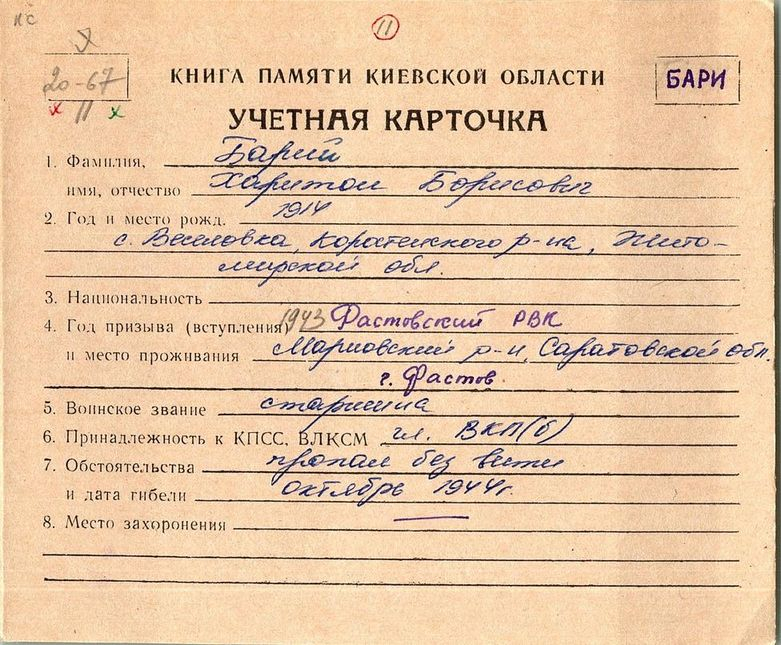 ПС
11
20-67
х 11 х
КНИГА ПАМЯТИ КИЕВСКОЙ ОБЛАСТИ
БАРИ
УЧЕТНАЯ КАРТОЧКА
1. Фамилия, Барий
имя, отчество Харитон Борисович
2. Год и место рожд. 1914
с. Веселовка, Коростенского р-на, Жито-
мирской обл.
3. Национальность
4. Год призыва (вступления) 1943 Фастовский РВК
и место проживания р-н, Саратовской обл.
г. Фастов.
5. Воинское звание старшина
6. Принадлежность к КПСС, ВЛКСМ чл. ВКП(б)
7. Обстоятельства пропал без вести
и дата гибели октябрь 1944г.
8. Место захоронения —